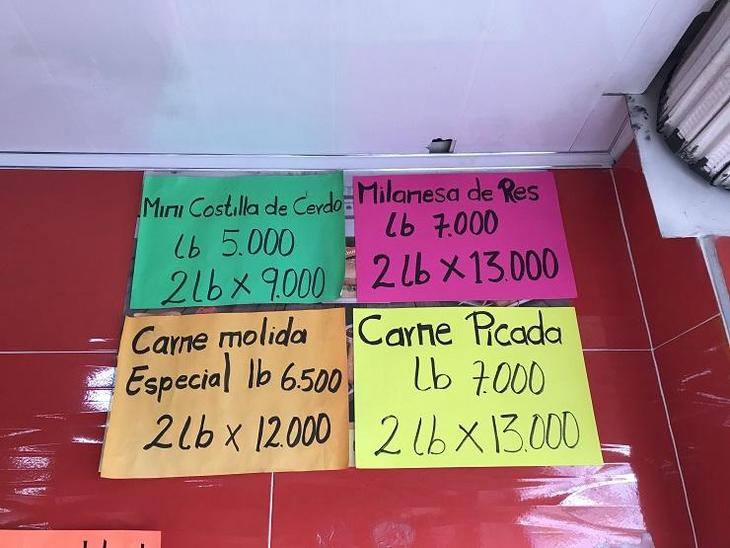 Mini Costilla de Cerdo
lb 5.000
2 lb x 9.000
Milanesa de Res
lb 7.000
2 lb x 13.000
Carne molida
Especial lb 6.500
2 lb x 12.000
Carne Picada
lb 7.000
2 lb x 13.000